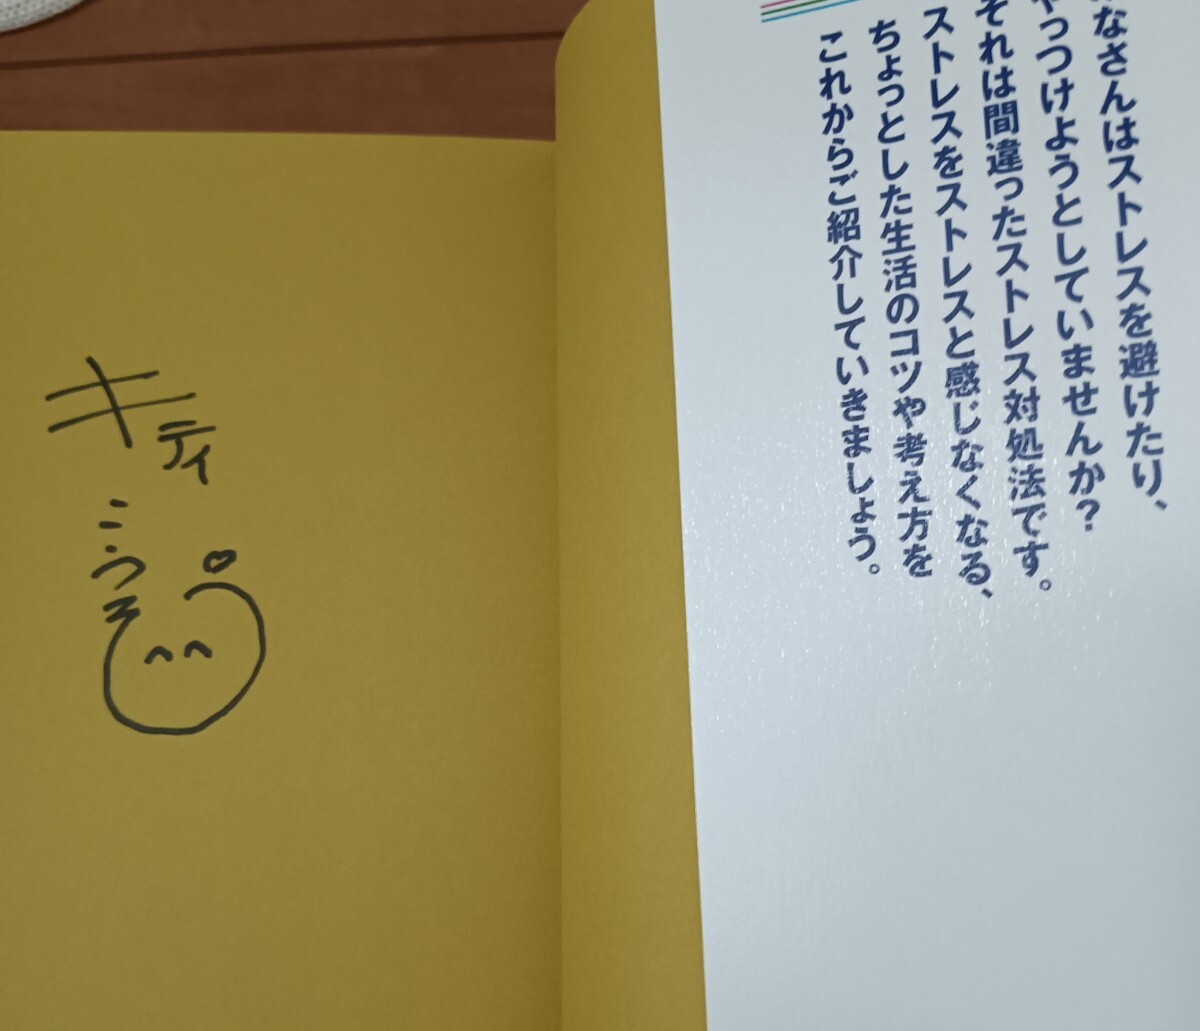 なさんはストレスを避けたり、
やっつけようとしていませんか?
それは間違ったストレス対処法です。
ストレスをストレスと感じなくなる、
ちょっとした生活のコツや考え方を
これからご紹介していきましょう。
キティ
こうぞ